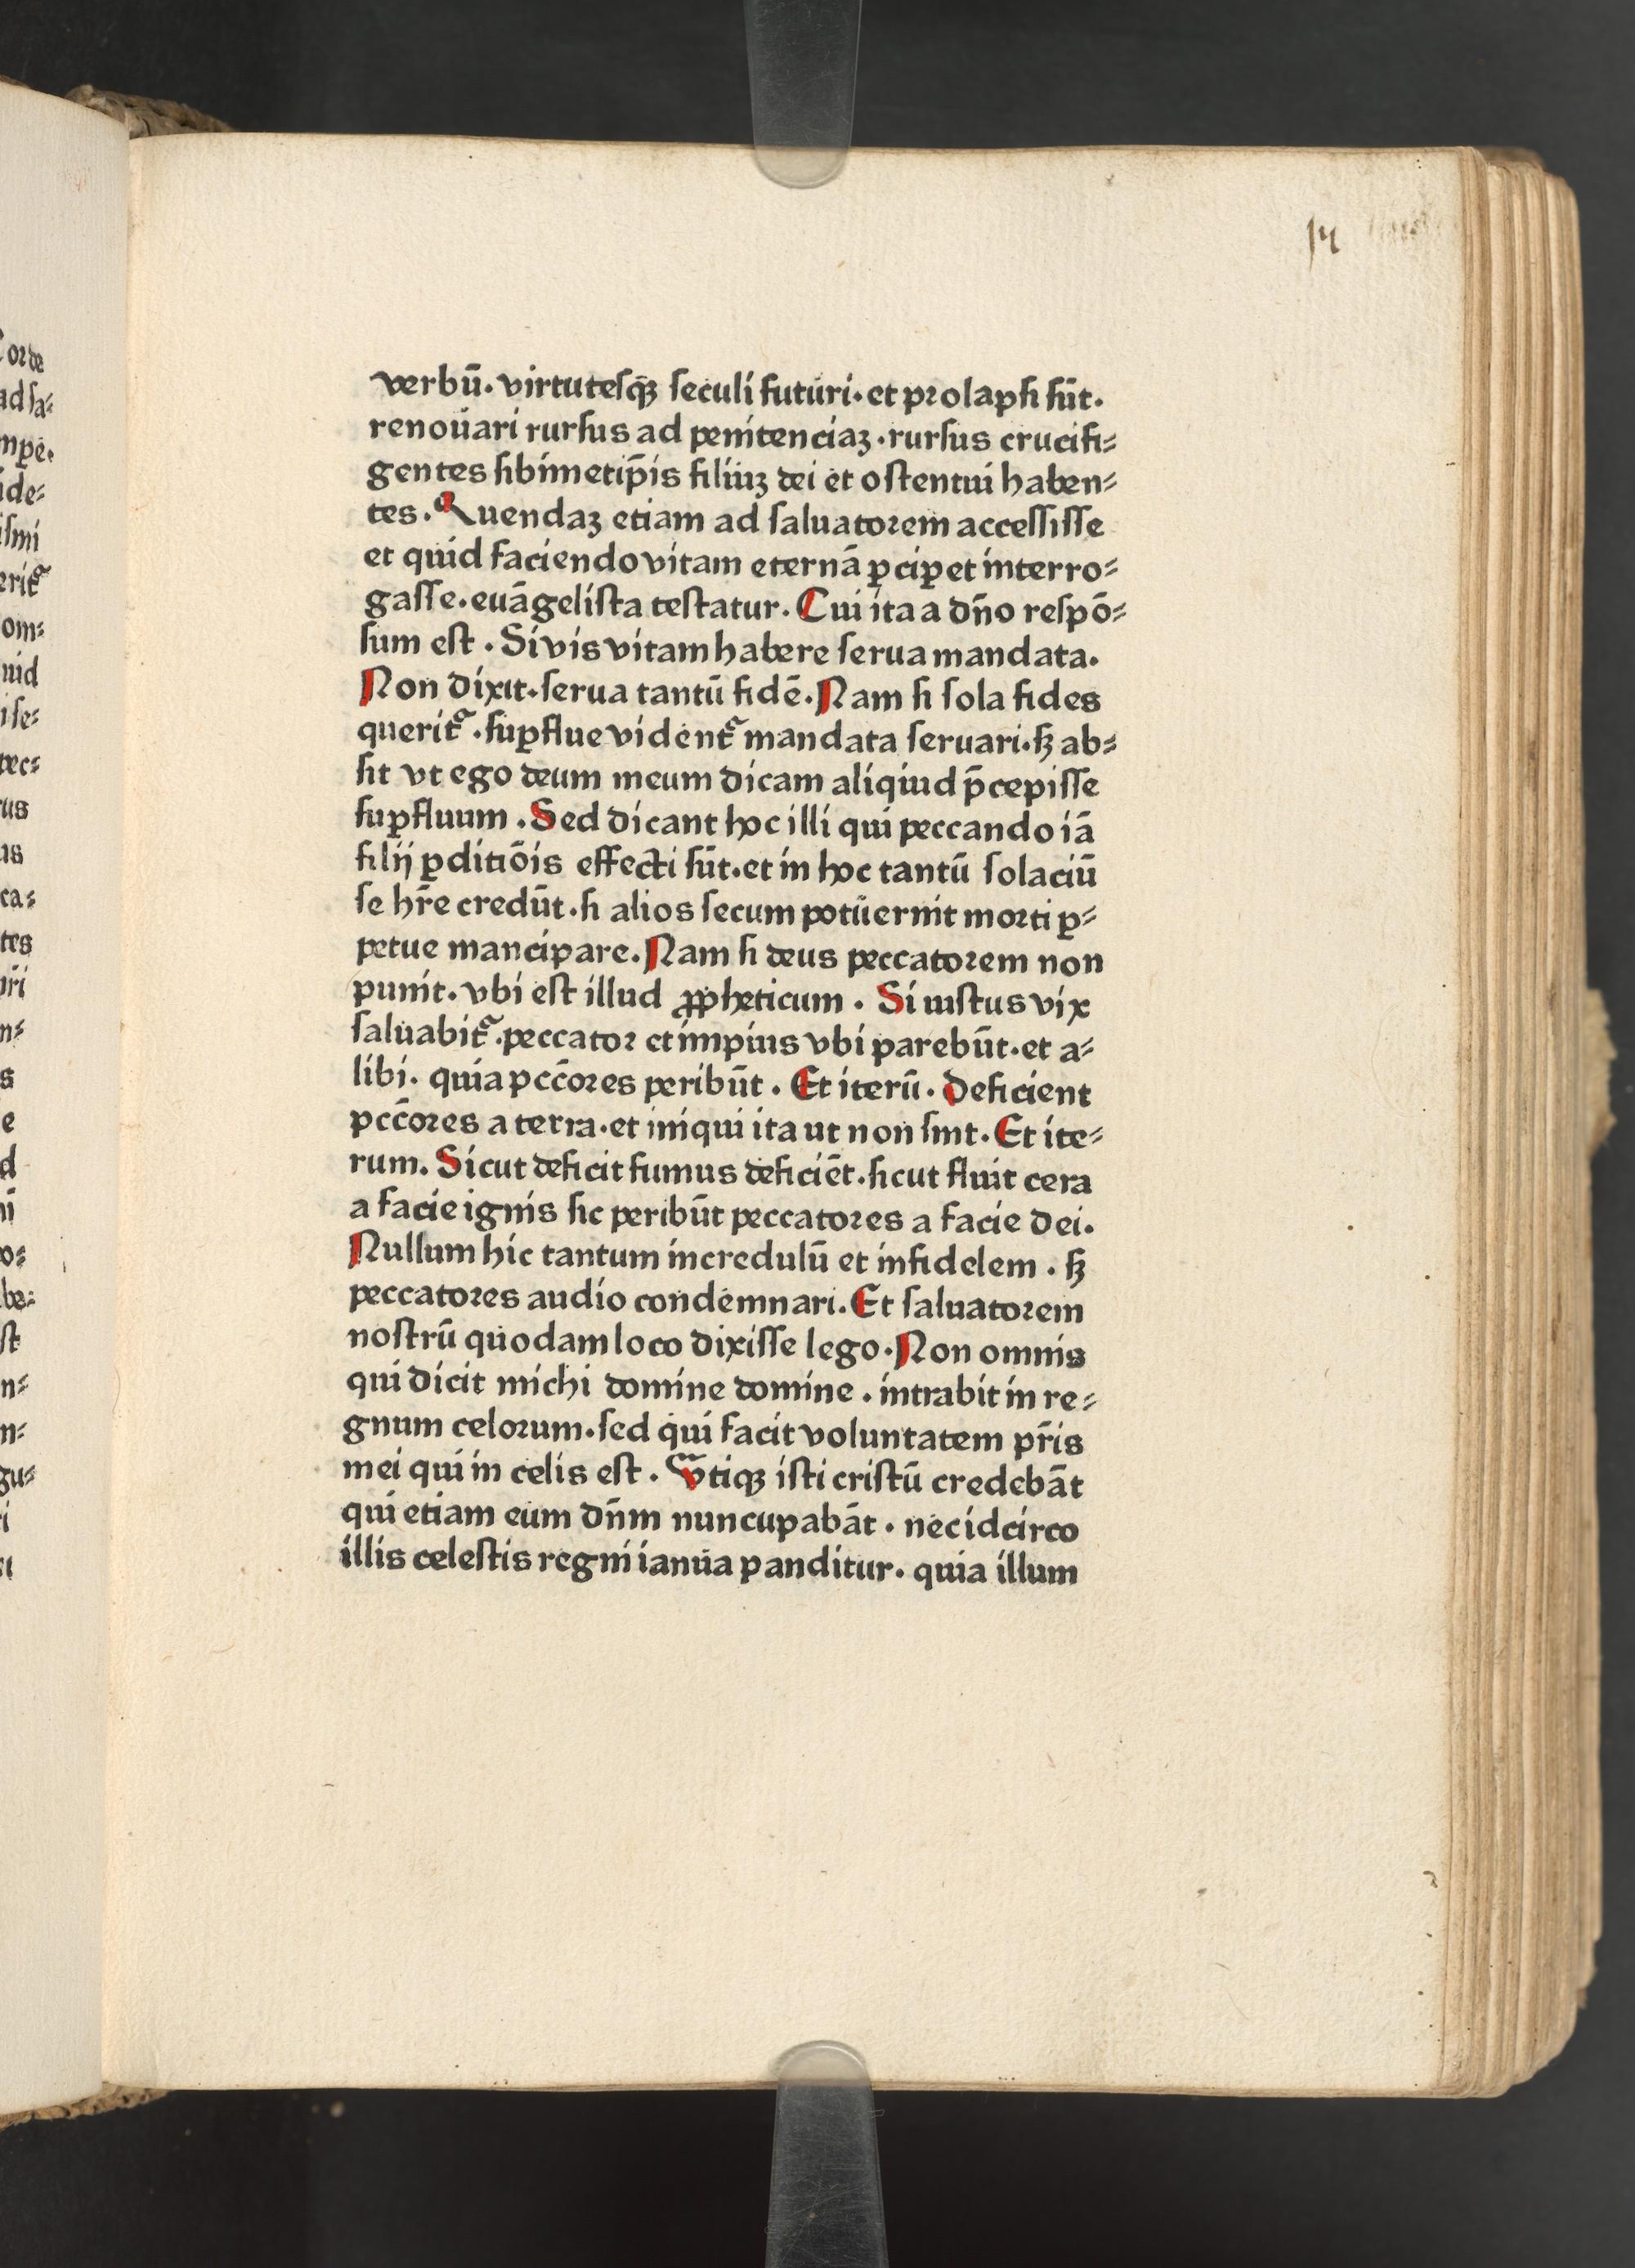 14
verbū. virtuteſqꝫ ſeculi futuri. et prolapſi ſūt.
renouari rurſus ad penitenciaꝫ. rurſus crucifi⸗
gentes ſibimetip̄is filiuꝫ dei et oſtentui haben⸗
tes. Quendaꝫ etiam ad ſaluatorem acceſſiſſe
et quid faciendo vitam eternā ꝑcipet interro⸗
gaſſe. euāgeliſta teſtatur. Cui ita a dn̄o reſpō⸗
ſum eſt. Si vis vitam habere ſerua mandata.
Non dixit. ſerua tantū fidē. Nam ſi ſola fides
querit᷑. ſuꝑflue vident᷑ mandata ſeruari. ſꝫ ab⸗
ſit vt ego deum meum dicam aliqiud p̄cepiſſe
ſuꝑfluum. Sed dicant hoc illi qui peccando iā
filij ꝑditiōis effecti ſūt. et in hoc tantū ſolaciū
ſe hr̄e credūt. ſi alios ſecum potuernit morti ꝑ⸗
petue mancipare. Nam ſi deus peccatorem non
punit. vbi eſt illud ꝓpheticum. Si iuſtus vix
ſaluabit᷑. peccator et impius vbi parebūt. et a⸗
libi. quia pcc̄ores peribūt. Et iterū. Deficient
pcc̄ores a terra. et iniqui ita ut non ſint. Et ite⸗
rum. Sicut deficit fumus deficiēt. ſicut fluit cera
a facie ignis ſic peribūt peccatores a facie dei.
Nullum hic tantum incredulū et infidelem. ſꝫ
peccatores audio condemnari. Et ſaluatorem
noſtrū quodam loco dixiſſe lego. Non omnis
qui dicit michi domine domine. intrabit in re⸗
gnum celorum. ſed qui facit voluntatem pr̄is
mei qui in celis eſt. Vtiqꝫ iſti criſtū credebāt
qui etiam eum dn̄m nuncupabāt. nec idcirco
illis celeſtis regni ianua panditur. quia illum